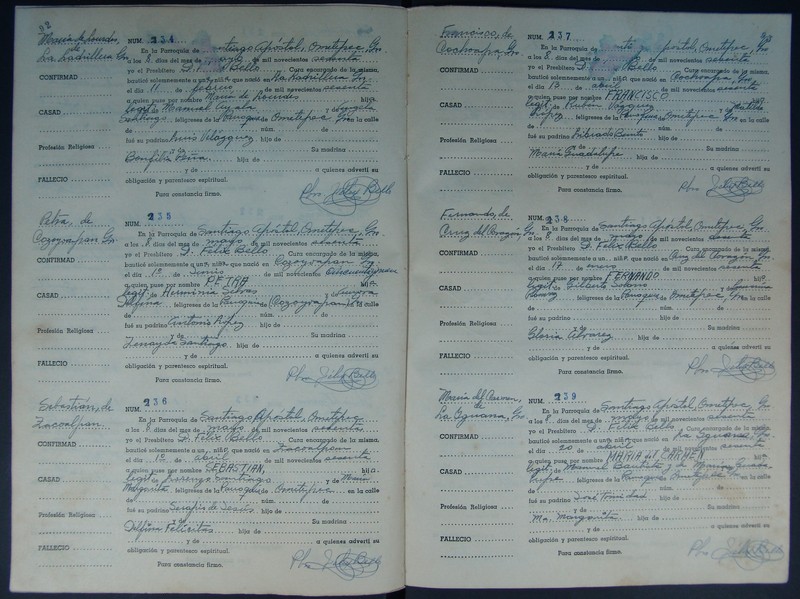 92
María de Lourdes, de La Ladrillera Gro.
CONFIRMAD
CASAD
Profesión Religiosa
FALLECIO
NUM. 234
En la Parroquia de Santiago Apóstol, Ometepec, Gro.
a los 8 días del mes de mayo de mil novecientos sesenta
yo el Presbítero D. Félix Bello Cura encargado de la misma,
bauticé solemnemente a un niñ que nació en La Ladrillera Gro.
el día 11 de febrero de mil novecientos sesenta
a quien puse por nombre María de Lourdes hij
legít. Manuel Ayala y
Santiago, feligreses de la Parroquia de Ometepec, Gro. en la calle
de núm. de
fué su padrino Luis Velázquez hijo de
y de Su madrina
Bonfilia Peña hija de
y de a quienes advertí su
obligación y parentesco espiritual.
Para constancia firmo. Pbro. Félix Bello
Petra, de Cozoyoapan Gro.
CONFIRMAD
CASAD
Profesión Religiosa
FALLECIO
NUM. 235
En la Parroquia de Santiago Apóstol, Ometepec, Gro.
a los 8 días del mes de mayo de mil novecientos sesenta
yo el Presbítero D. Félix Bello Cura encargado de la misma,
bauticé solemnemente a un niñ que nació en Cozoyoapan Gro.
el día 1º de junio de mil novecientos cincuentinueve
a quien puse por nombre PETRA hij
legít. Herminia
feligreses de la Parroquia de (Cozoyoapan) en la calle
de núm. de
fué su padrino Antonio López hijo de
y de Su madrina
Zenayda Santiago hija de
y de a quienes advertí su
obligación y parentesco espiritual.
Para constancia firmo. Pbro. Félix Bello
Sebastián, de Zacoalpan.
CONFIRMAD
CASAD
Profesión Religiosa
FALLECIO
NUM. 236
En la Parroquia de Santiago Apóstol, Ometepec
a los 8 días del mes de mayo de mil novecientos sesenta
yo el Presbítero D. Félix Bello Cura encargado de la misma,
bauticé solemnemente a un niñ que nació en Zacoalpan
el día 1º de abril de mil novecientos sesenta
a quien puse por nombre SEBASTIAN, hij
legít. Lorenzo Santiago y de María
Margarita, feligreses de la Parroquia de Ometepec en la calle
de núm. de
fué su padrino Serapio de Jesús hijo de
y de Su madrina
Delfina Felicitas hija de
y de a quienes advertí su
obligación y parentesco espiritual.
Para constancia firmo. Pbro. Félix Bello
Francisco, de Cochoapa, Gro.
CONFIRMAD
CASAD
Profesión Religiosa
FALLECIO
NUM. 237
En la Parroquia de Santiago Apóstol, Ometepec, Gro.
a los 8 días del mes de mayo de mil novecientos sesenta
yo el Presbítero D. Félix Bello Cura encargado de la misma,
bauticé solemnemente a un niñ que nació en Cochoapa, Gro.
el día 13 de abril de mil novecientos sesenta
a quien puse por nombre FRANCISCO hij
legít. Rubén Vázquez y
López, feligreses de la Parroquia Ometepec, Gro. en la calle
de núm. de
fué su padrino Librado hijo de
y de Su madrina
María Guadalupe hija de
y de a quienes advertí su
obligación y parentesco espiritual.
Para constancia firmo. Pbro. Félix Bello
Fernando, de Cruz del Corazón, Gro.
CONFIRMAD
CASAD
Profesión Religiosa
FALLECIO
NUM. 238
En la Parroquia de Santiago Apóstol, Ometepec, Gro.
a los 8 días del mes de mayo de mil novecientos sesenta
yo el Presbítero D. Félix Bello Cura encargado de la misma,
bauticé solemnemente a un niñ que nació en Cruz del Corazón, Gro.
el día 17 de de mil novecientos sesenta
a quien puse por nombre FERNANDO hij
legít. Gilberto Solano y
Ramos, feligreses de la Parroquia de Ometepec, Gro. en la calle
de núm. de
fué su padrino hijo de
y de Su madrina
Gloria Álvarez hija de
y de a quienes advertí su
obligación y parentesco espiritual.
Para constancia firmo. Pbro. Félix Bello
María del Carmen, de La Iguana, Gro.
CONFIRMAD
CASAD
Profesión Religiosa
FALLECIO
NUM. 239
En la Parroquia de Santiago Apóstol, Ometepec, Gro.
a los 8 días del mes de mayo de mil novecientos sesenta
yo el Presbítero D. Félix Bello Cura encargado de la misma,
bauticé solemnemente a un niñ que nació en La Iguana, Gro.
el día 20 de abril de mil novecientos sesenta
a quien puse por nombre MARIA del CARMEN hij
legít. Manuel Bautista y de María Guada-
lupe feligreses de la Parroquia Ometepec, Gro. en la calle
de núm. de
fué su padrino José Trinidad hijo de
y de Su madrina
Ma. Margarita hija de
y de a quienes advertí su
obligación y parentesco espiritual.
Para constancia firmo. Pbro. Félix Bello